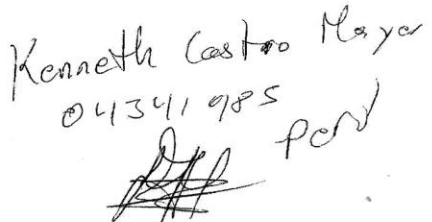 Kenneth Castro Mayor
04341985
Perú